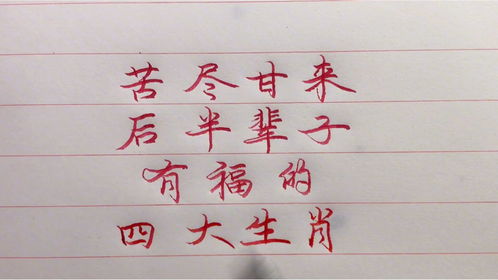 苦尽甘来
后半辈子
有福的
四大生肖